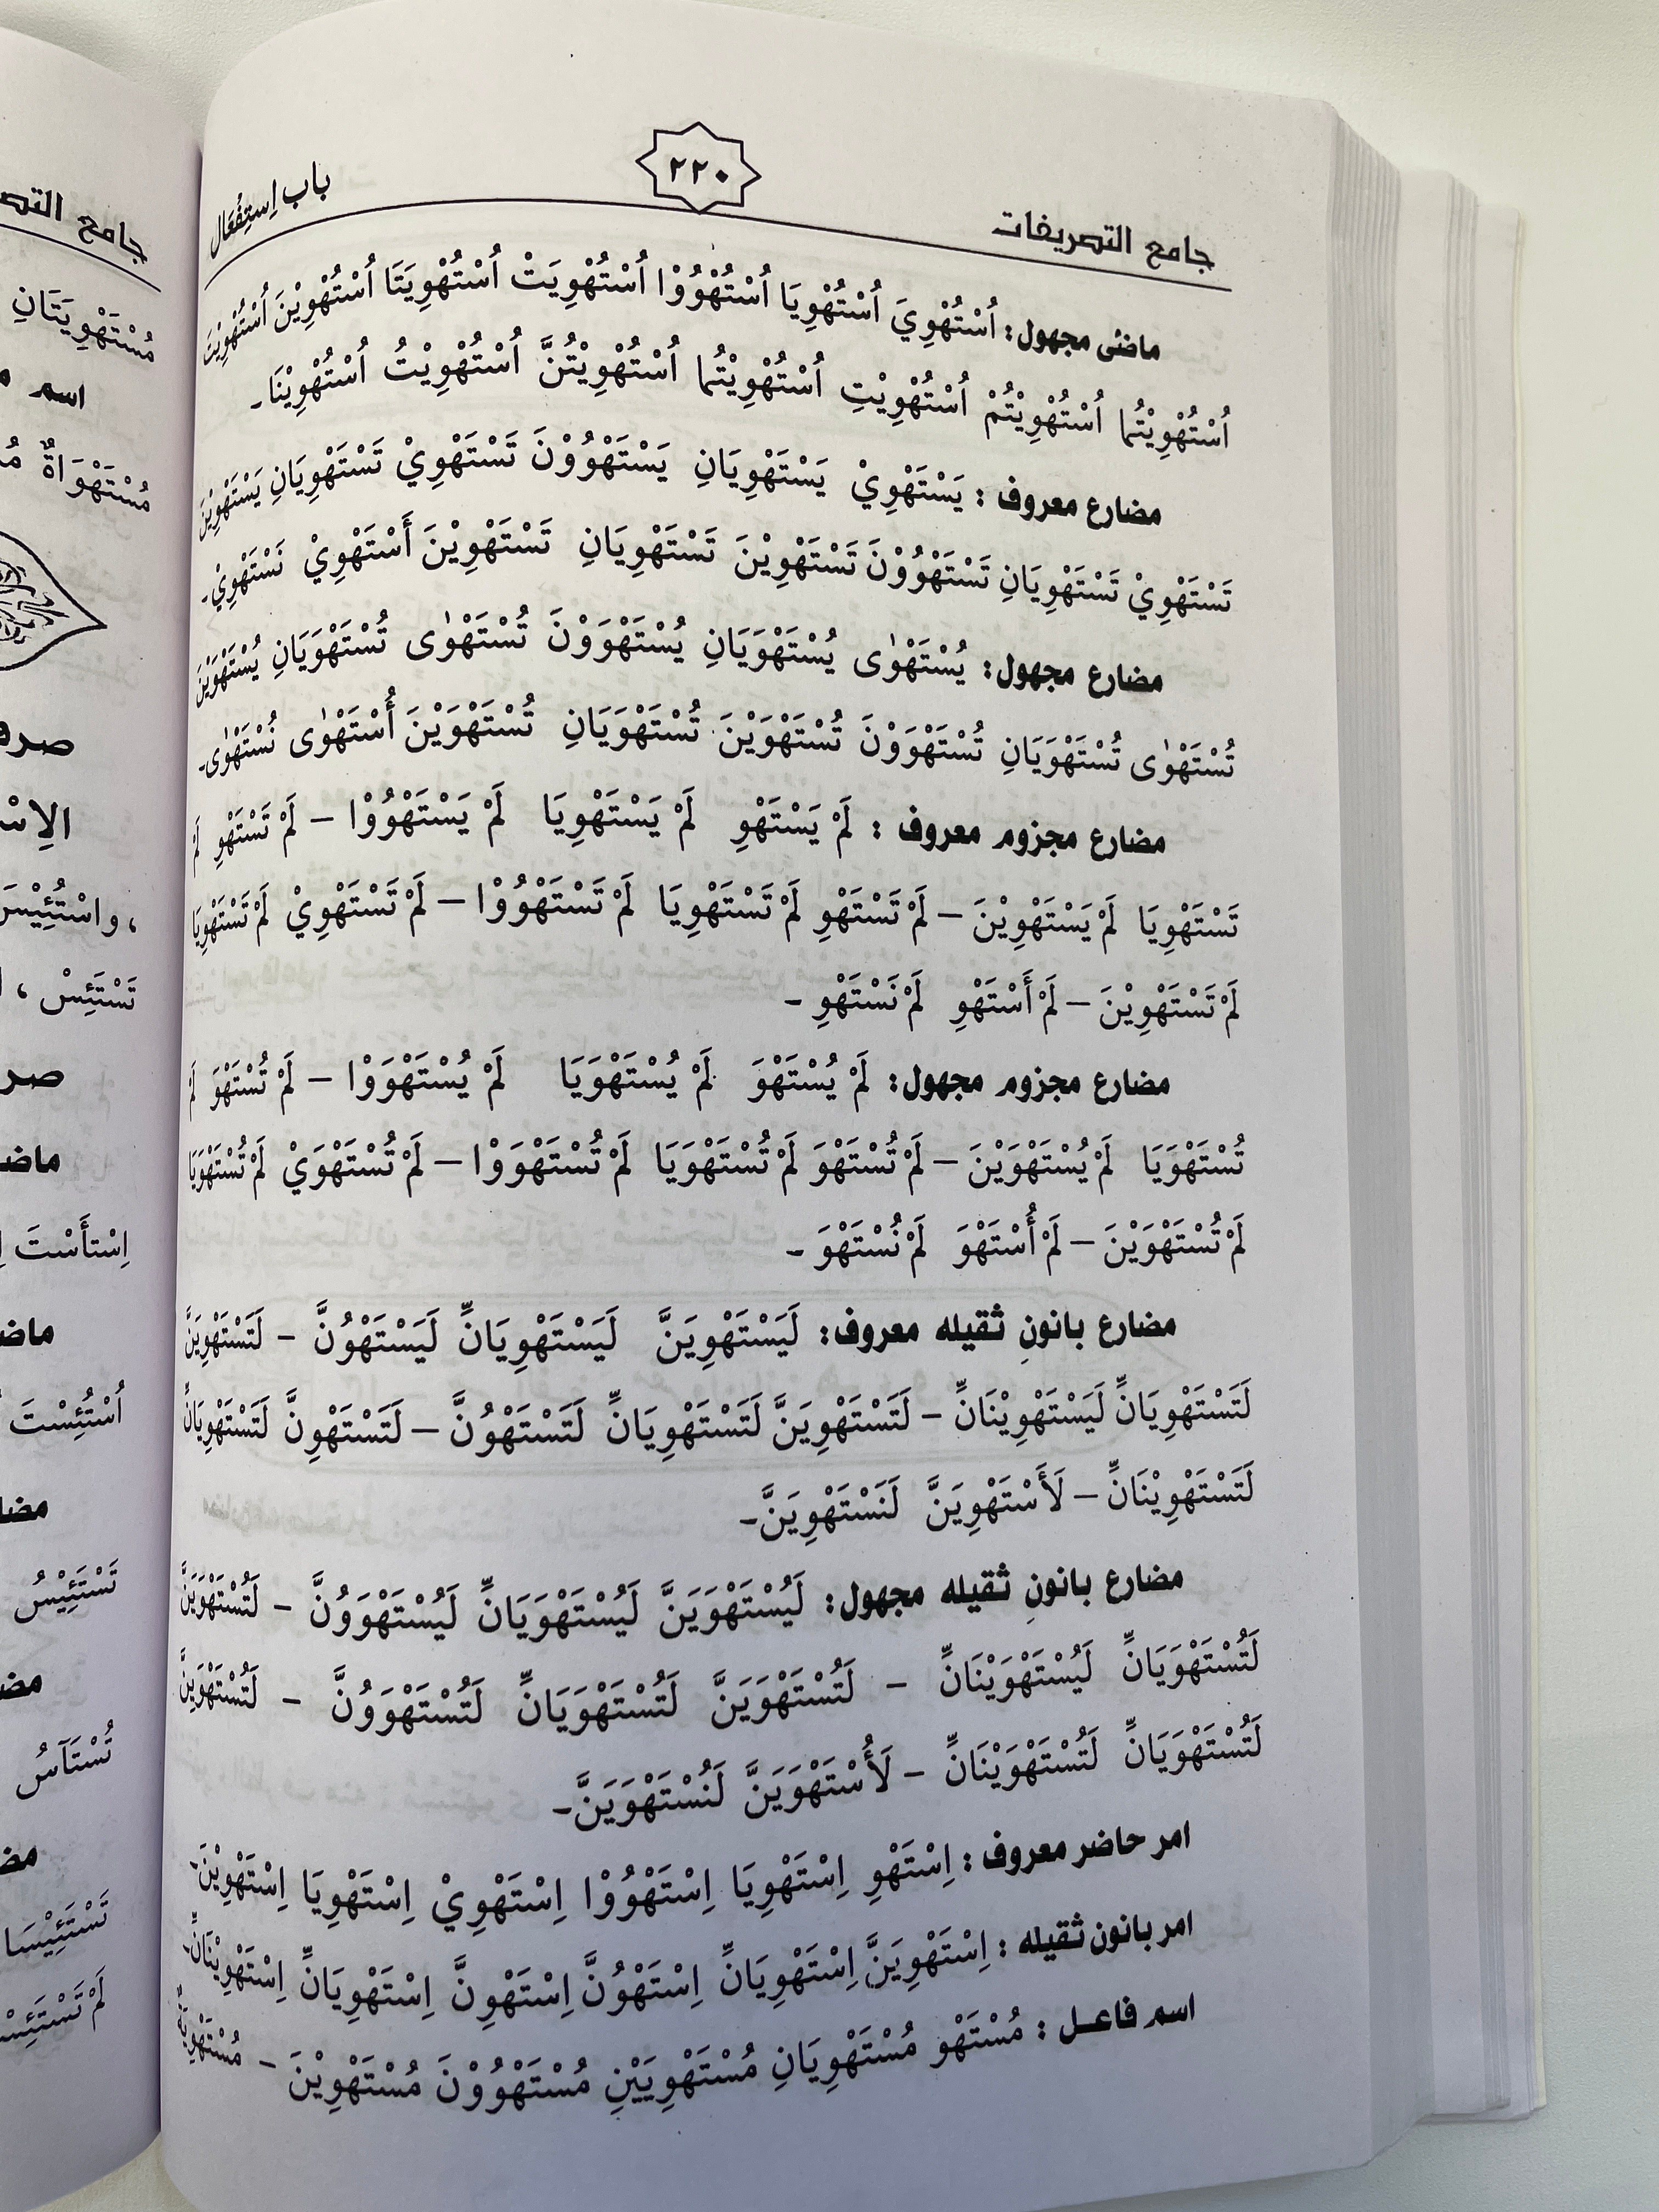 جامع التصريفات
٢٢٠
باب اِستِفْعَال
ماضی مجهول: اُسْتُهْوِيَ اُسْتُهْوِيَا اُسْتُهْوُوْا اُسْتُهْوِيَتْ اُسْتُهْوِيَتَا اُسْتُهْوِيْنَ اُسْتُهْوِيْتَ
اُسْتُهْوِيْتُما اُسْتُهْوِيْتُمْ اُسْتُهْوِيْتِ اُسْتُهْوِيْتُما اُسْتُهْوِيْتُنَّ اُسْتُهْوِيْتُ اُسْتُهْوِيْنَا۔
مضارع معروف : يَسْتَهْوِيْ يَسْتَهْوِيَانِ يَسْتَهْوُوْنَ تَسْتَهْوِيْ تَسْتَهْوِيَانِ يَسْتَهْوِيْنَ
تَسْتَهْوِيْ تَسْتَهْوِيَانِ تَسْتَهْوُوْنَ تَسْتَهْوِيْنَ تَسْتَهْوِيَانِ تَسْتَهْوِيْنَ أَسْتَهْوِيْ نَسْتَهْوِيْ۔
مضارع مجهول: يُسْتَهْوٰى يُسْتَهْوَيَانِ يُسْتَهْوَوْنَ تُسْتَهْوٰى تُسْتَهْوَيَانِ يُسْتَهْوَيْنَ
تُسْتَهْوٰى تُسْتَهْوَيَانِ تُسْتَهْوَوْنَ تُسْتَهْوَيْنَ تُسْتَهْوَيَانِ تُسْتَهْوَيْنَ أُسْتَهْوٰى نُسْتَهْوٰى۔
مضارع مجزوم معروف : لَمْ يَسْتَهْوِ لَمْ يَسْتَهْوِيَا لَمْ يَسْتَهْوُوْا – لَمْ تَسْتَهْوِ لَمْ
تَسْتَهْوِيَا لَمْ يَسْتَهْوِيْنَ – لَمْ تَسْتَهْوِ لَمْ تَسْتَهْوِيَا لَمْ تَسْتَهْوُوْا – لَمْ تَسْتَهْوِيْ لَمْ تَسْتَهْوِيَا
لَمْ تَسْتَهْوِيْنَ – لَمْ أَسْتَهْوِ لَمْ نَسْتَهْوِ ۔
مضارع مجزوم مجهول: لَمْ يُسْتَهْوَ لَمْ يُسْتَهْوَيَا لَمْ يُسْتَهْوَوْا – لَمْ تُسْتَهْوَ لَمْ
تُسْتَهْوَيَا لَمْ يُسْتَهْوَيْنَ – لَمْ تُسْتَهْوَ لَمْ تُسْتَهْوَيَا لَمْ تُسْتَهْوَوْا – لَمْ تُسْتَهْوَيْ لَمْ تُسْتَهْوَيَا
لَمْ تُسْتَهْوَيْنَ – لَمْ أُسْتَهْوَ لَمْ نُسْتَهْوَ ۔
مضارع بانونِ ثقيله معروف: لَيَسْتَهْوِيَنَّ لَيَسْتَهْوِيَانِّ لَيَسْتَهْوُنَّ – لَتَسْتَهْوِيَنَّ
لَتَسْتَهْوِيَانِّ لَيَسْتَهْوِيْنَانِّ – لَتَسْتَهْوِيَنَّ لَتَسْتَهْوِيَانِّ لَتَسْتَهْوُنَّ – لَتَسْتَهْوِنَّ لَتَسْتَهْوِيَانِّ
لَتَسْتَهْوِيْنَانِّ – لَأَسْتَهْوِيَنَّ لَنَسْتَهْوِيَنَّ۔
مضارع بانونِ ثقيله مجهول: لَيُسْتَهْوَيَنَّ لَيُسْتَهْوَيَانِّ لَيُسْتَهْوَوُنَّ – لَتُسْتَهْوَيَنَّ
لَتُسْتَهْوَيَانِّ لَيُسْتَهْوَيْنَانِّ – لَتُسْتَهْوَيَنَّ لَتُسْتَهْوَيَانِّ لَتُسْتَهْوَوُنَّ – لَتُسْتَهْوَيِنَّ
لَتُسْتَهْوَيَانِّ لَتُسْتَهْوَيْنَانِّ – لَأُسْتَهْوَيَنَّ لَنُسْتَهْوَيَنَّ۔
امر حاضر معروف : اِسْتَهْوِ اِسْتَهْوِيَا اِسْتَهْوُوْا اِسْتَهْوِيْ اِسْتَهْوِيَا اِسْتَهْوِيْنَ۔
امر بانون ثقيله : اِسْتَهْوِيَنَّ اِسْتَهْوِيَانِّ اِسْتَهْوُنَّ اِسْتَهْوِنَّ اِسْتَهْوِيَانِّ اِسْتَهْوِيْنَانِّ۔
اسم فاعل : مُسْتَهْوٍ مُسْتَهْوِيَانِ مُسْتَهْوِيَيْنِ مُسْتَهْوُوْنَ مُسْتَهْوِيْنَ – مُسْتَهْوِيَةٌ
جامع
مُسْتَهْوِيَتَانِ
اسم
مُسْتَهْوَاةٌ
، واسْتُئِيْسَ
تَسْتَئِسْ ،
اِسْتَأَسْتَ
اُسْتُئِسْتَ
تَسْتَئِيْسُ
تُسْتَآسُ
تَسْتَئِيْسَا